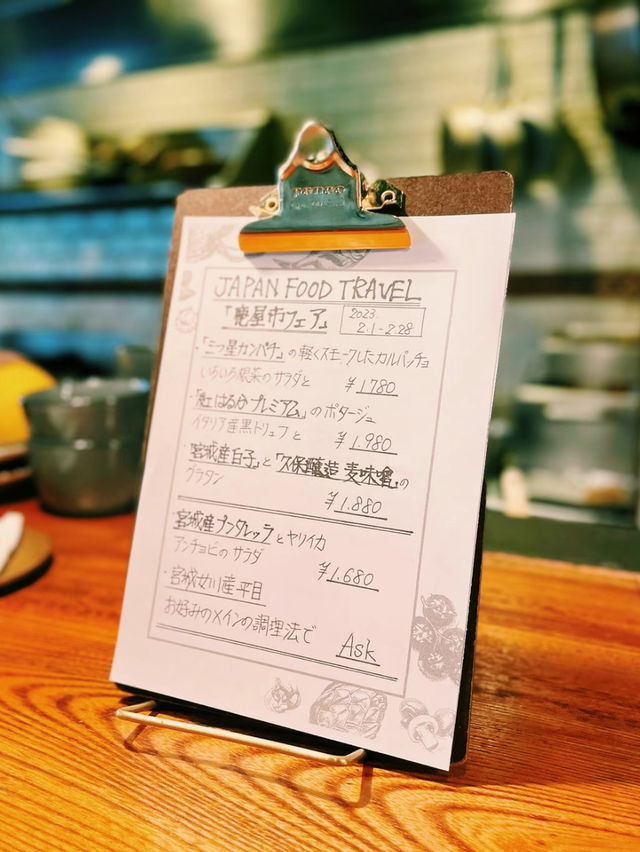 JAPAN FOOD TRAVEL
「鹿屋市フェア」
2023.
2.1-2.28
・「三つ星カンパチ」の軽くスモークしたカルパッチョ
いろいろ根菜のサラダと
¥1780
・「紅はるかプレミアム」のポタージュ
イタリア産黒トリュフと
¥1.980
・宮城産白子」と「久保醸造 麦味噌」の
グラタン
¥1.880
・宮城産プンタレッラとヤリイカ
アンチョビのサラダ
¥1.680
・宮城女川産平目
お好みのメインの調理法で
Ask